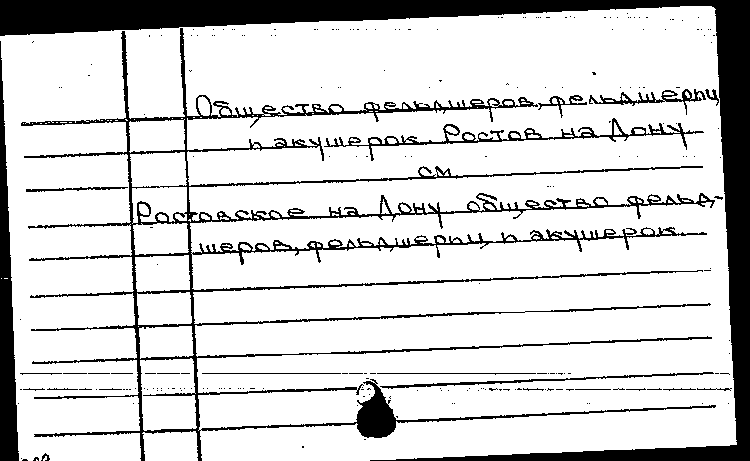 Общество фельдшеров, фельдшериц
и акушерок. Ростов на Дону
см.
Ростовское на Дону общество фельд-
шеров, фельдшериц и акушерок.